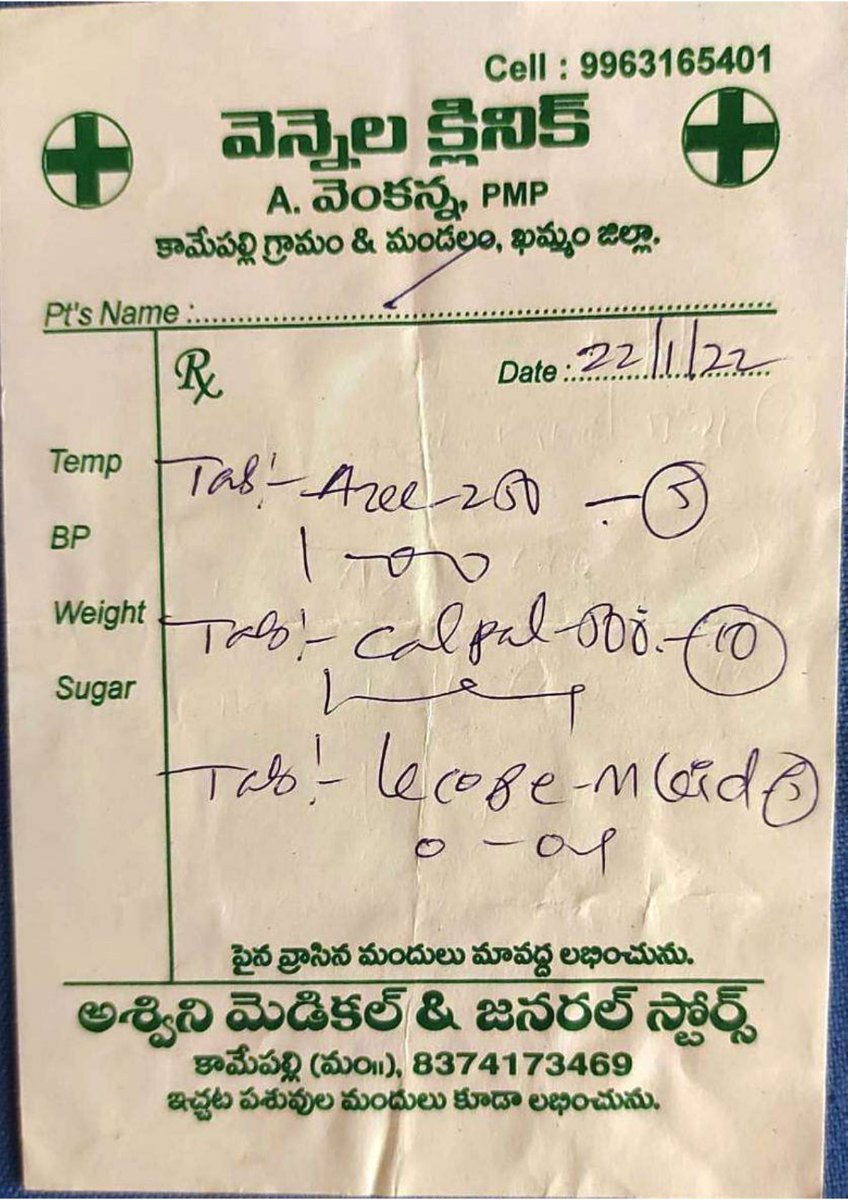 Cell : 9963165401
వెన్నెల క్లినిక్
A. వెంకన్న, PMP
కామేపల్లి గ్రామం & మండలం, ఖమ్మం జిల్లా.
Pt's Name :
Rx
Date : 22/1/22
Temp
Tab:- Azee-250 - 5
BP
1-0-0
Weight
Tab:- calpal-500. - 10
Sugar
Tab:- lecope-m 5
0 - 0 - 1
పైన వ్రాసిన మందులు మావద్ద లభించును.
అశ్విని మెడికల్ & జనరల్ స్టోర్స్
కామేపల్లి (మం॥), 8374173469
ఇచ్చట పశువుల మందులు కూడా లభించును.